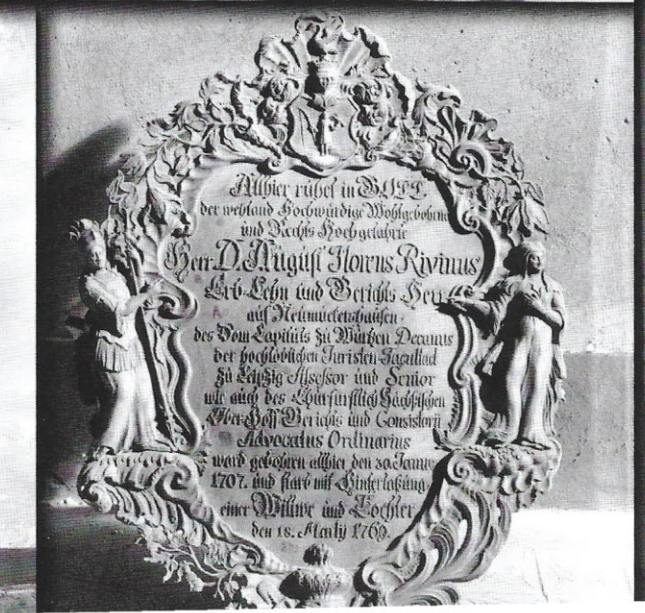 Allhier ruhet in GOTT.
der weyland Hochwürdige Wohlgebohrne
und Rechts Hochgelahrte
Herr D. August Florens Rivinus
Erb-Lehn und Gerichts Herr
auf
des Dom Capituls zu Wurtzen Decanus
der hochlöblichen Juristen Facultad
zu Leipzig Assessor und Senior
wie auch des Churfürstlich Sächsischen
Ober Hoff Gerichts und Consistorii
Advocatus Ordinarius
ward gebohren allhier den Janu:
1707. und starb mit Hinterlaßung
einer Wittwe und Tochter
den 18. Martij 1769.